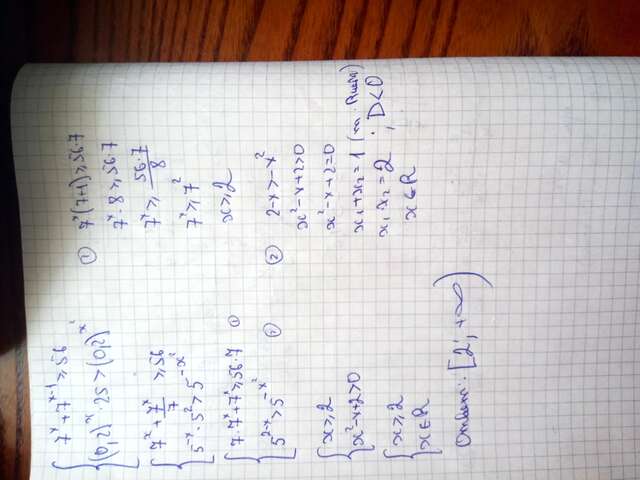 7^x + 7^{x-1} ≥ 56
(0,2)^x · 25 > (0,2)^{x²}
7^x + 7^x/7 ≥ 56
5^{-x} · 5² > 5^{-x²}
7·7^x + 7^x ≥ 56·7 ①
5^{2-x} > 5^{-x²} ②
x ≥ 2
x² - x + 2 > 0
x ≥ 2
x ∈ R
Ответ: [2; +∞)
① 7^x (7+1) ≥ 56·7
7^x · 8 ≥ 56·7
7^x ≥ 56·7/8
7^x ≥ 7²
x ≥ 2
② 2-x > -x²
x² - x + 2 > 0
x² - x + 2 = 0
x₁ + x₂ = 1 (т. Виета)
x₁ x₂ = 2 ; D < 0
x ∈ R